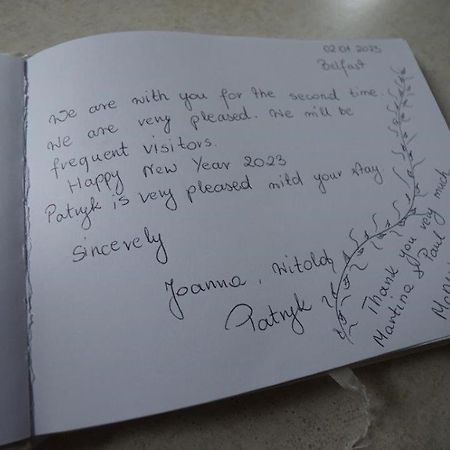 02.01 2023
Belfast
We are with you for the second time.
We are very pleased. We will be
frequent visitors.
Happy New Year 2023
Patryk is very pleased mitd your stay.
Sincerely
Joanna, Witold,
Patryk
Thank you very much
Martina & Paul